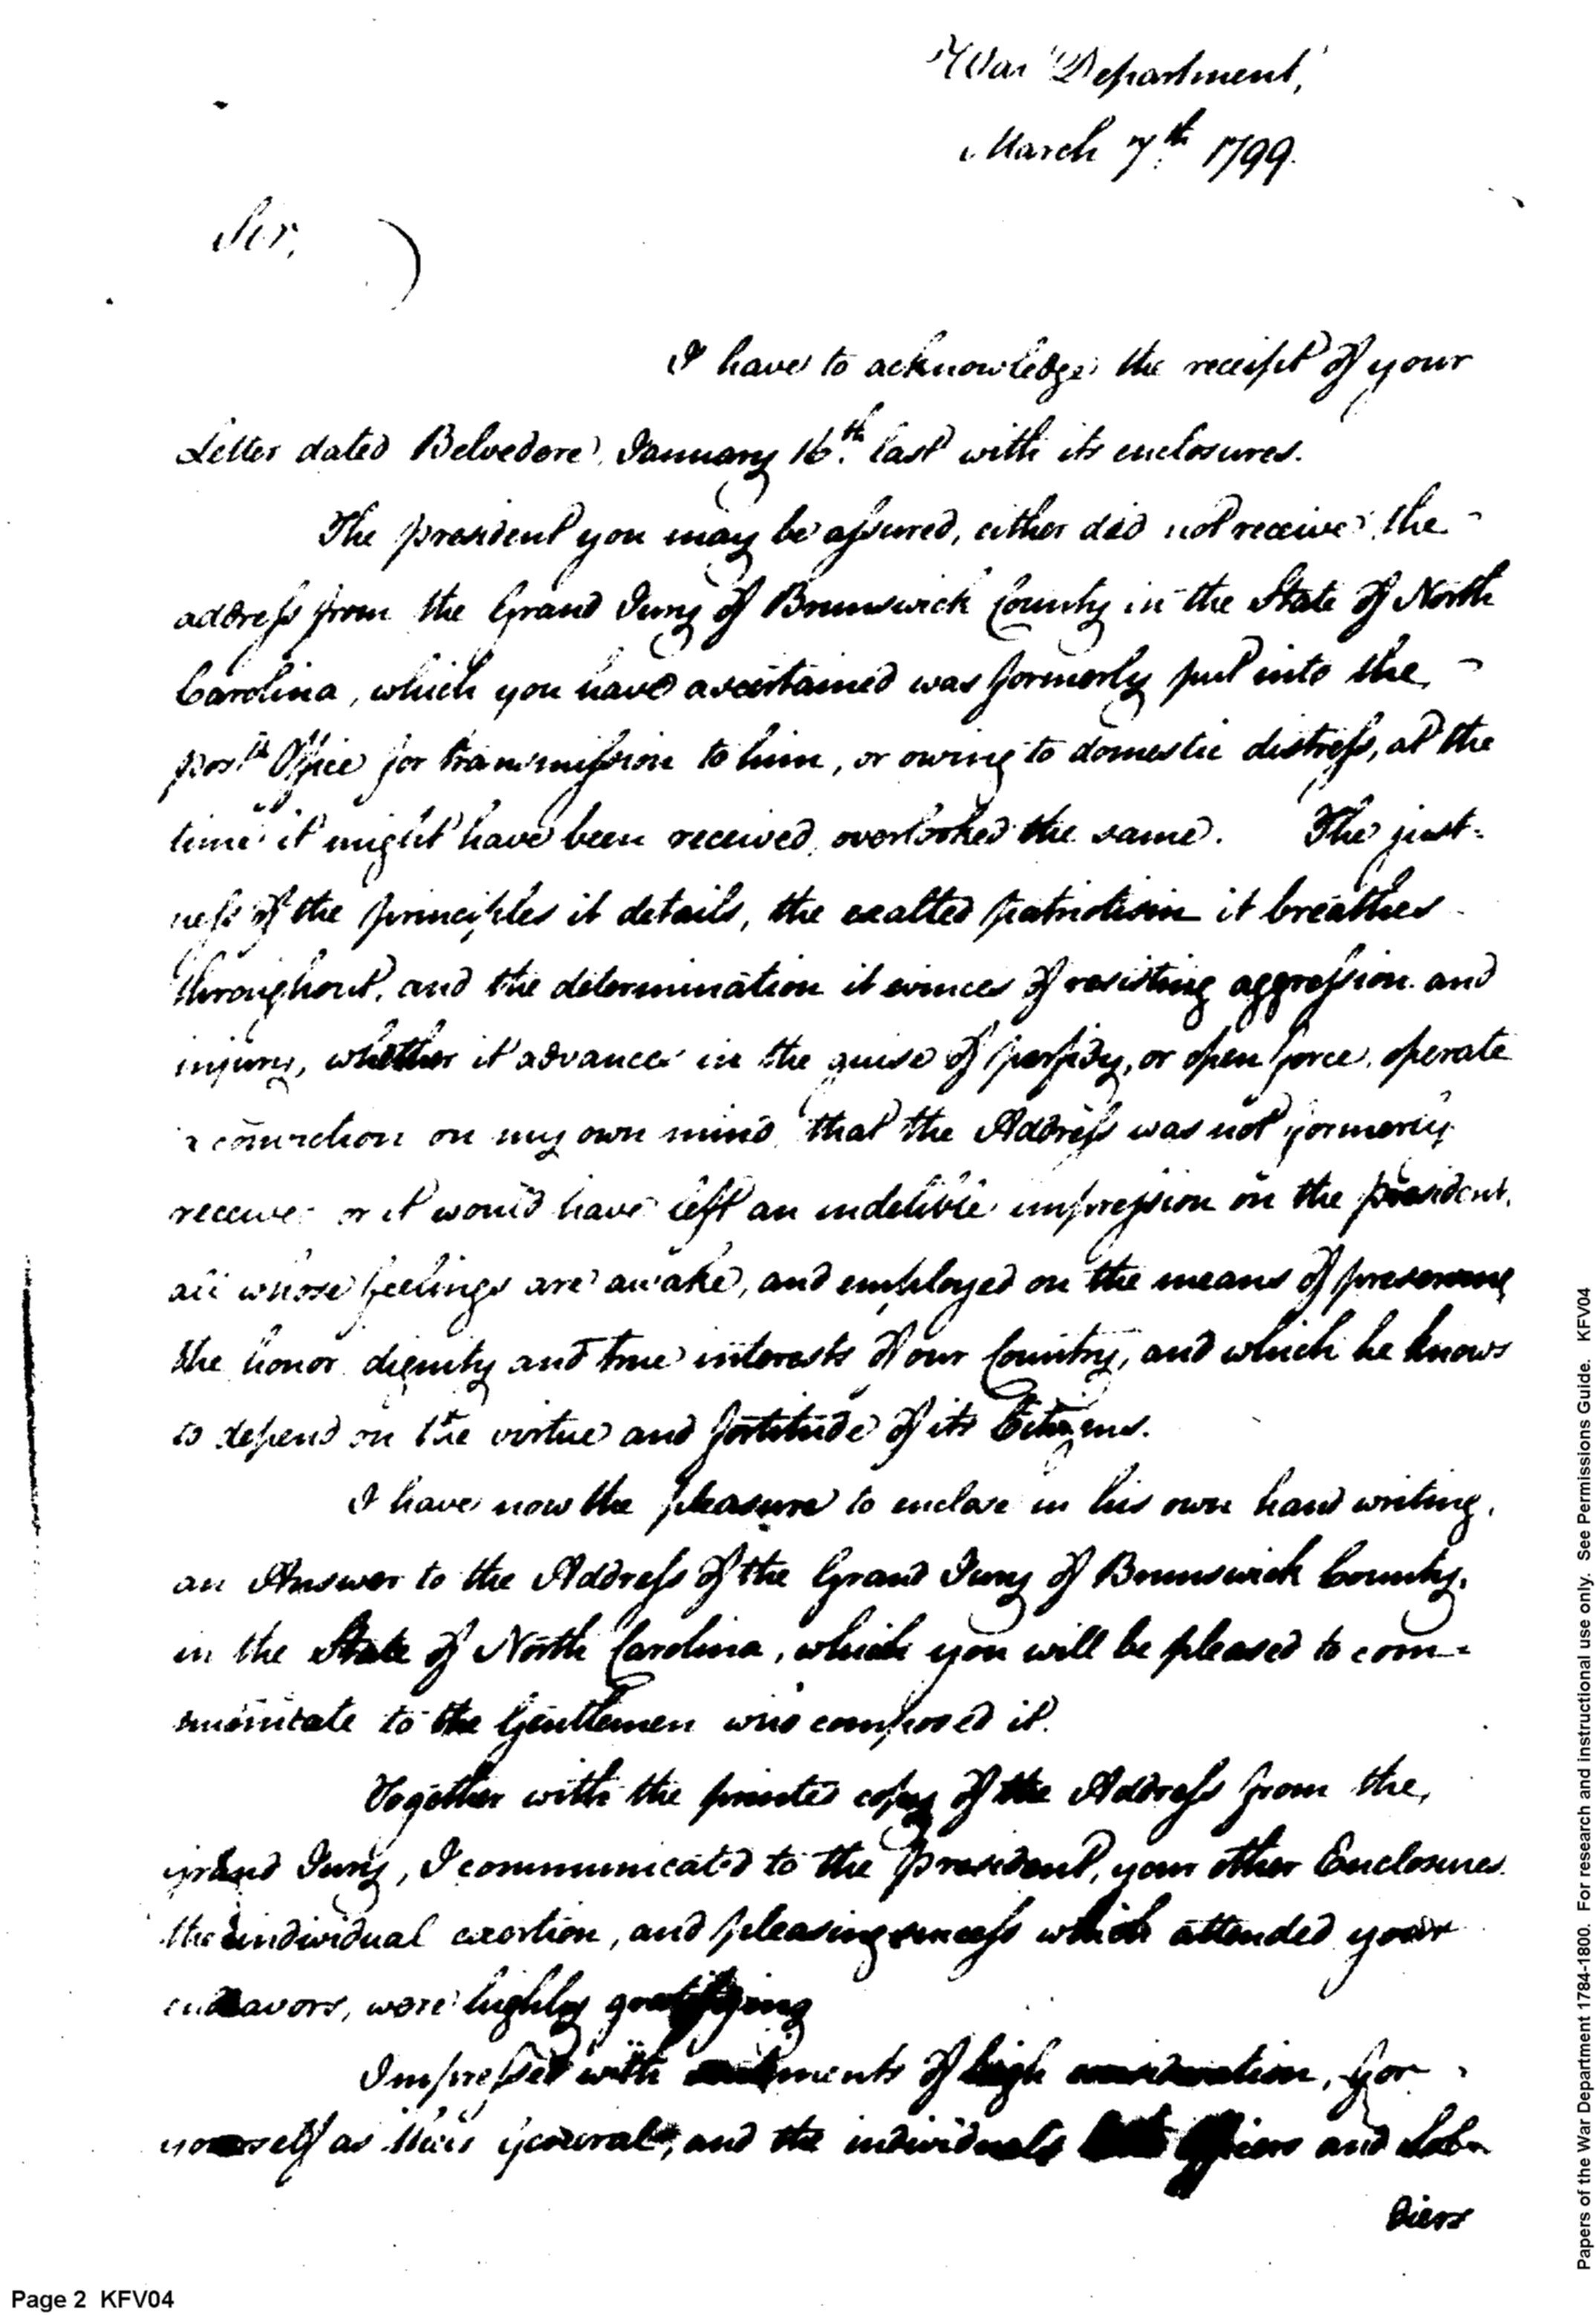 War Department,
March 7th 1799.
Sir,
I have to acknowledge the receipt of your
Letter dated Belvedere, January 16th. last with its enclosures.
The president you may be assured, either did not receive the
address from the Grand Jury of Brunswick County in the State of North
Carolina, which you have ascertained was formerly put into the
post Office for transmission to him, or owing to domestic distress, at the
time it might have been received, overlooked the same. The just-
ness of the principles it details, the exalted patriotism it breathes
throughout, and the determination it evinces of resisting aggression and
injury, whether it advances in the guise of perfidy, or open force, operate
a conviction on my own mind, that the Address was not formerly
receive or it would have left an indelible impression on the president,
all whose feelings are awake, and employed on the means of preserving
the honor dignity and true interests of our Country, and which he knows
to depend on the virtue and fortitude of its Citizens.
I have now the pleasure to enclose in his own hand writing,
an Answer to the Address of the Grand Jury of Brunswick County,
in the State of North Carolina, which you will be pleased to com-
municate to the Gentlemen who composed it.
Together with the printed copy of the Address from the
grand Jury, I communicated to the President, your other Enclosures
the individual exertion, and pleasing success which attended your
endeavors, were highly gratifying
Impressed with sentiments of high consideration, for
yourself as their general, and the individuals Officers and Sol-
diers
Page 2 KFV04
Papers of the War Department 1784-1800. For research and instructional use only. See Permissions Guide. KFV04